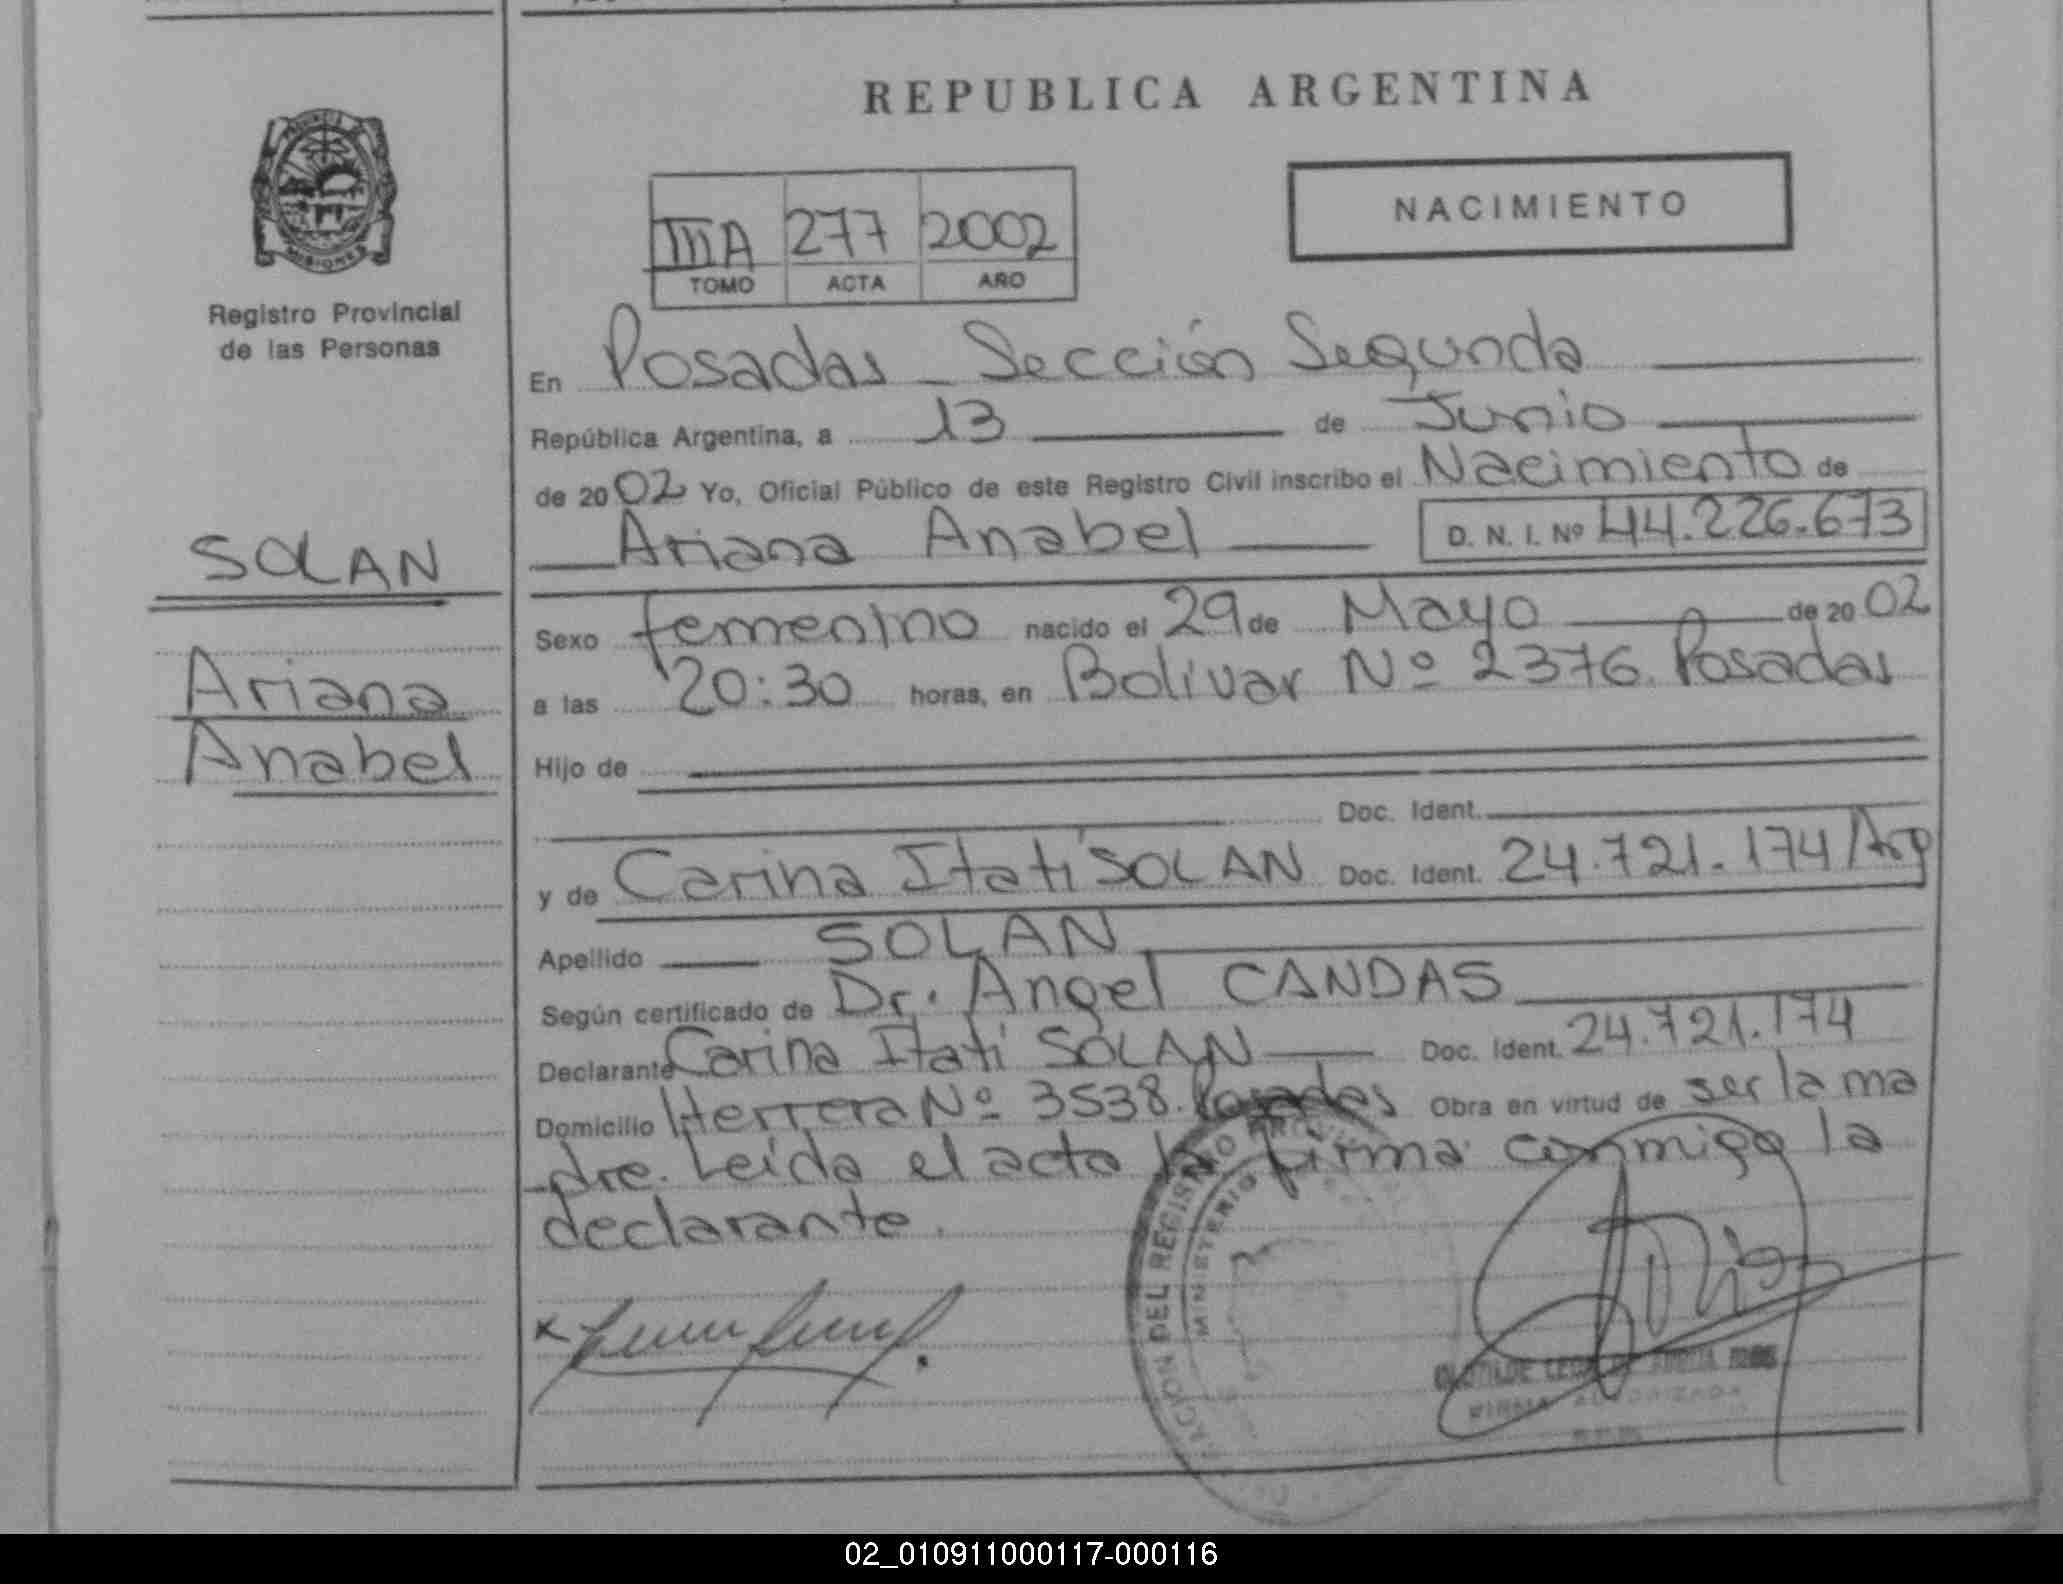 REPUBLICA ARGENTINA
NACIMIENTO
IIIA 277 2002
TOMO ACTA AÑO
PROVINCIA DE
MISIONES
Registro Provincial
de las Personas
SOLAN
Ariana
Anabel
En Posadas - Sección Segunda
República Argentina, a 13 de Junio
de 2002 Yo, Oficial Público de este Registro Civil inscribo el Nacimiento de
Ariana Anabel D. N. I. Nº 44.226.673
Sexo femenino nacido el 29 de Mayo de 2002
a las 20:30 horas, en Bolívar Nº 2376. Posadas
Hijo de
Doc. Ident.
y de Carina Itatí SOLAN Doc. Ident. 24.721.174/Arg
Apellido SOLAN
Según certificado de Dr. Angel CANDAS
Declarante Carina Itatí SOLAN Doc. Ident. 24.721.174
Domicilio Herrera Nº 3538. Posadas Obra en virtud de ser la ma
dre. Leída el acta la firma conmigo la
declarante.
DEL REGISTRO
MINISTERIO
CLOTILDE
FIRMA AUTORIZADA
02_010911000117-000116